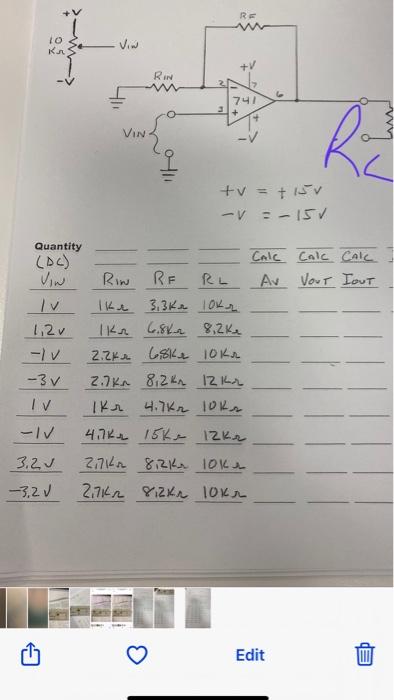 +V
10
KΩ
VIN
-V
RF
RIN
+V
2
7
741
6
3
+
4
-V
VIN
RL
+V = +15V
-V = -15V
Quantity
(DC) CALC CALC CALC
VIN RIN RF RL AV VOUT IOUT
1V 1KΩ 3,3KΩ 10KΩ
1,2V 1KΩ 6.8KΩ 8,2KΩ
-1V 2.2KΩ 6.8KΩ 10KΩ
-3V 2.7KΩ 8,2KΩ 12KΩ
1V 1KΩ 4.7KΩ 10KΩ
-1V 4,7KΩ 15KΩ 12KΩ
3,2V 2,7KΩ 8,2KΩ 10KΩ
-3,2V 2,7KΩ 8,2KΩ 10KΩ
Edit